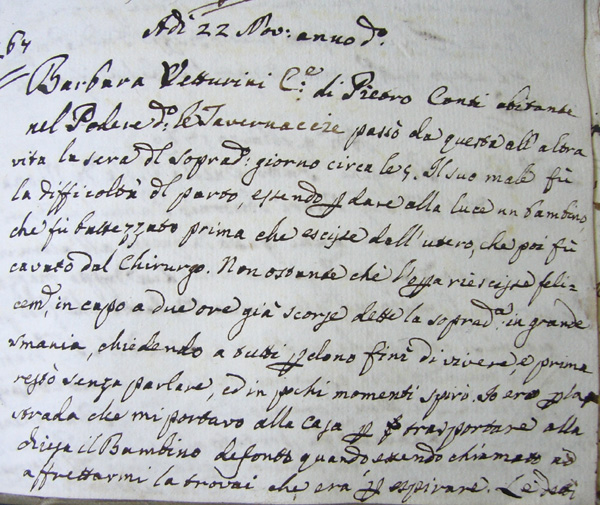 67
Adì 22 Nov: anno dº.
Barbara Vetturini C.e di Pietro Conti abitante
nel Podere dº. le Tavernaccie passò da questa all'altra
vita la sera dl soprad: giorno circa le 5. Il suo male fù
la difficoltà dl parto, essendo p dare alla luce un bambino
che fù battezzato prima che escisse dall'utero, che poi fù
cavato dal Chirurgo. Non ostante che l'essa riescisse feli-
cemt, in capo a due ore già scorse dette la sopradª: in grande
smania, chiedendo a tutti pdono finì di vivere, e prima
restò senza parlare, ed in pochi momenti spirò. Io ero p la
strada che mi portavo alla casa p trasportare alla
chiesa il Bambino defonto quando essendo chiamato ad
affrettarmi la trovai che era p espirare. Le detti